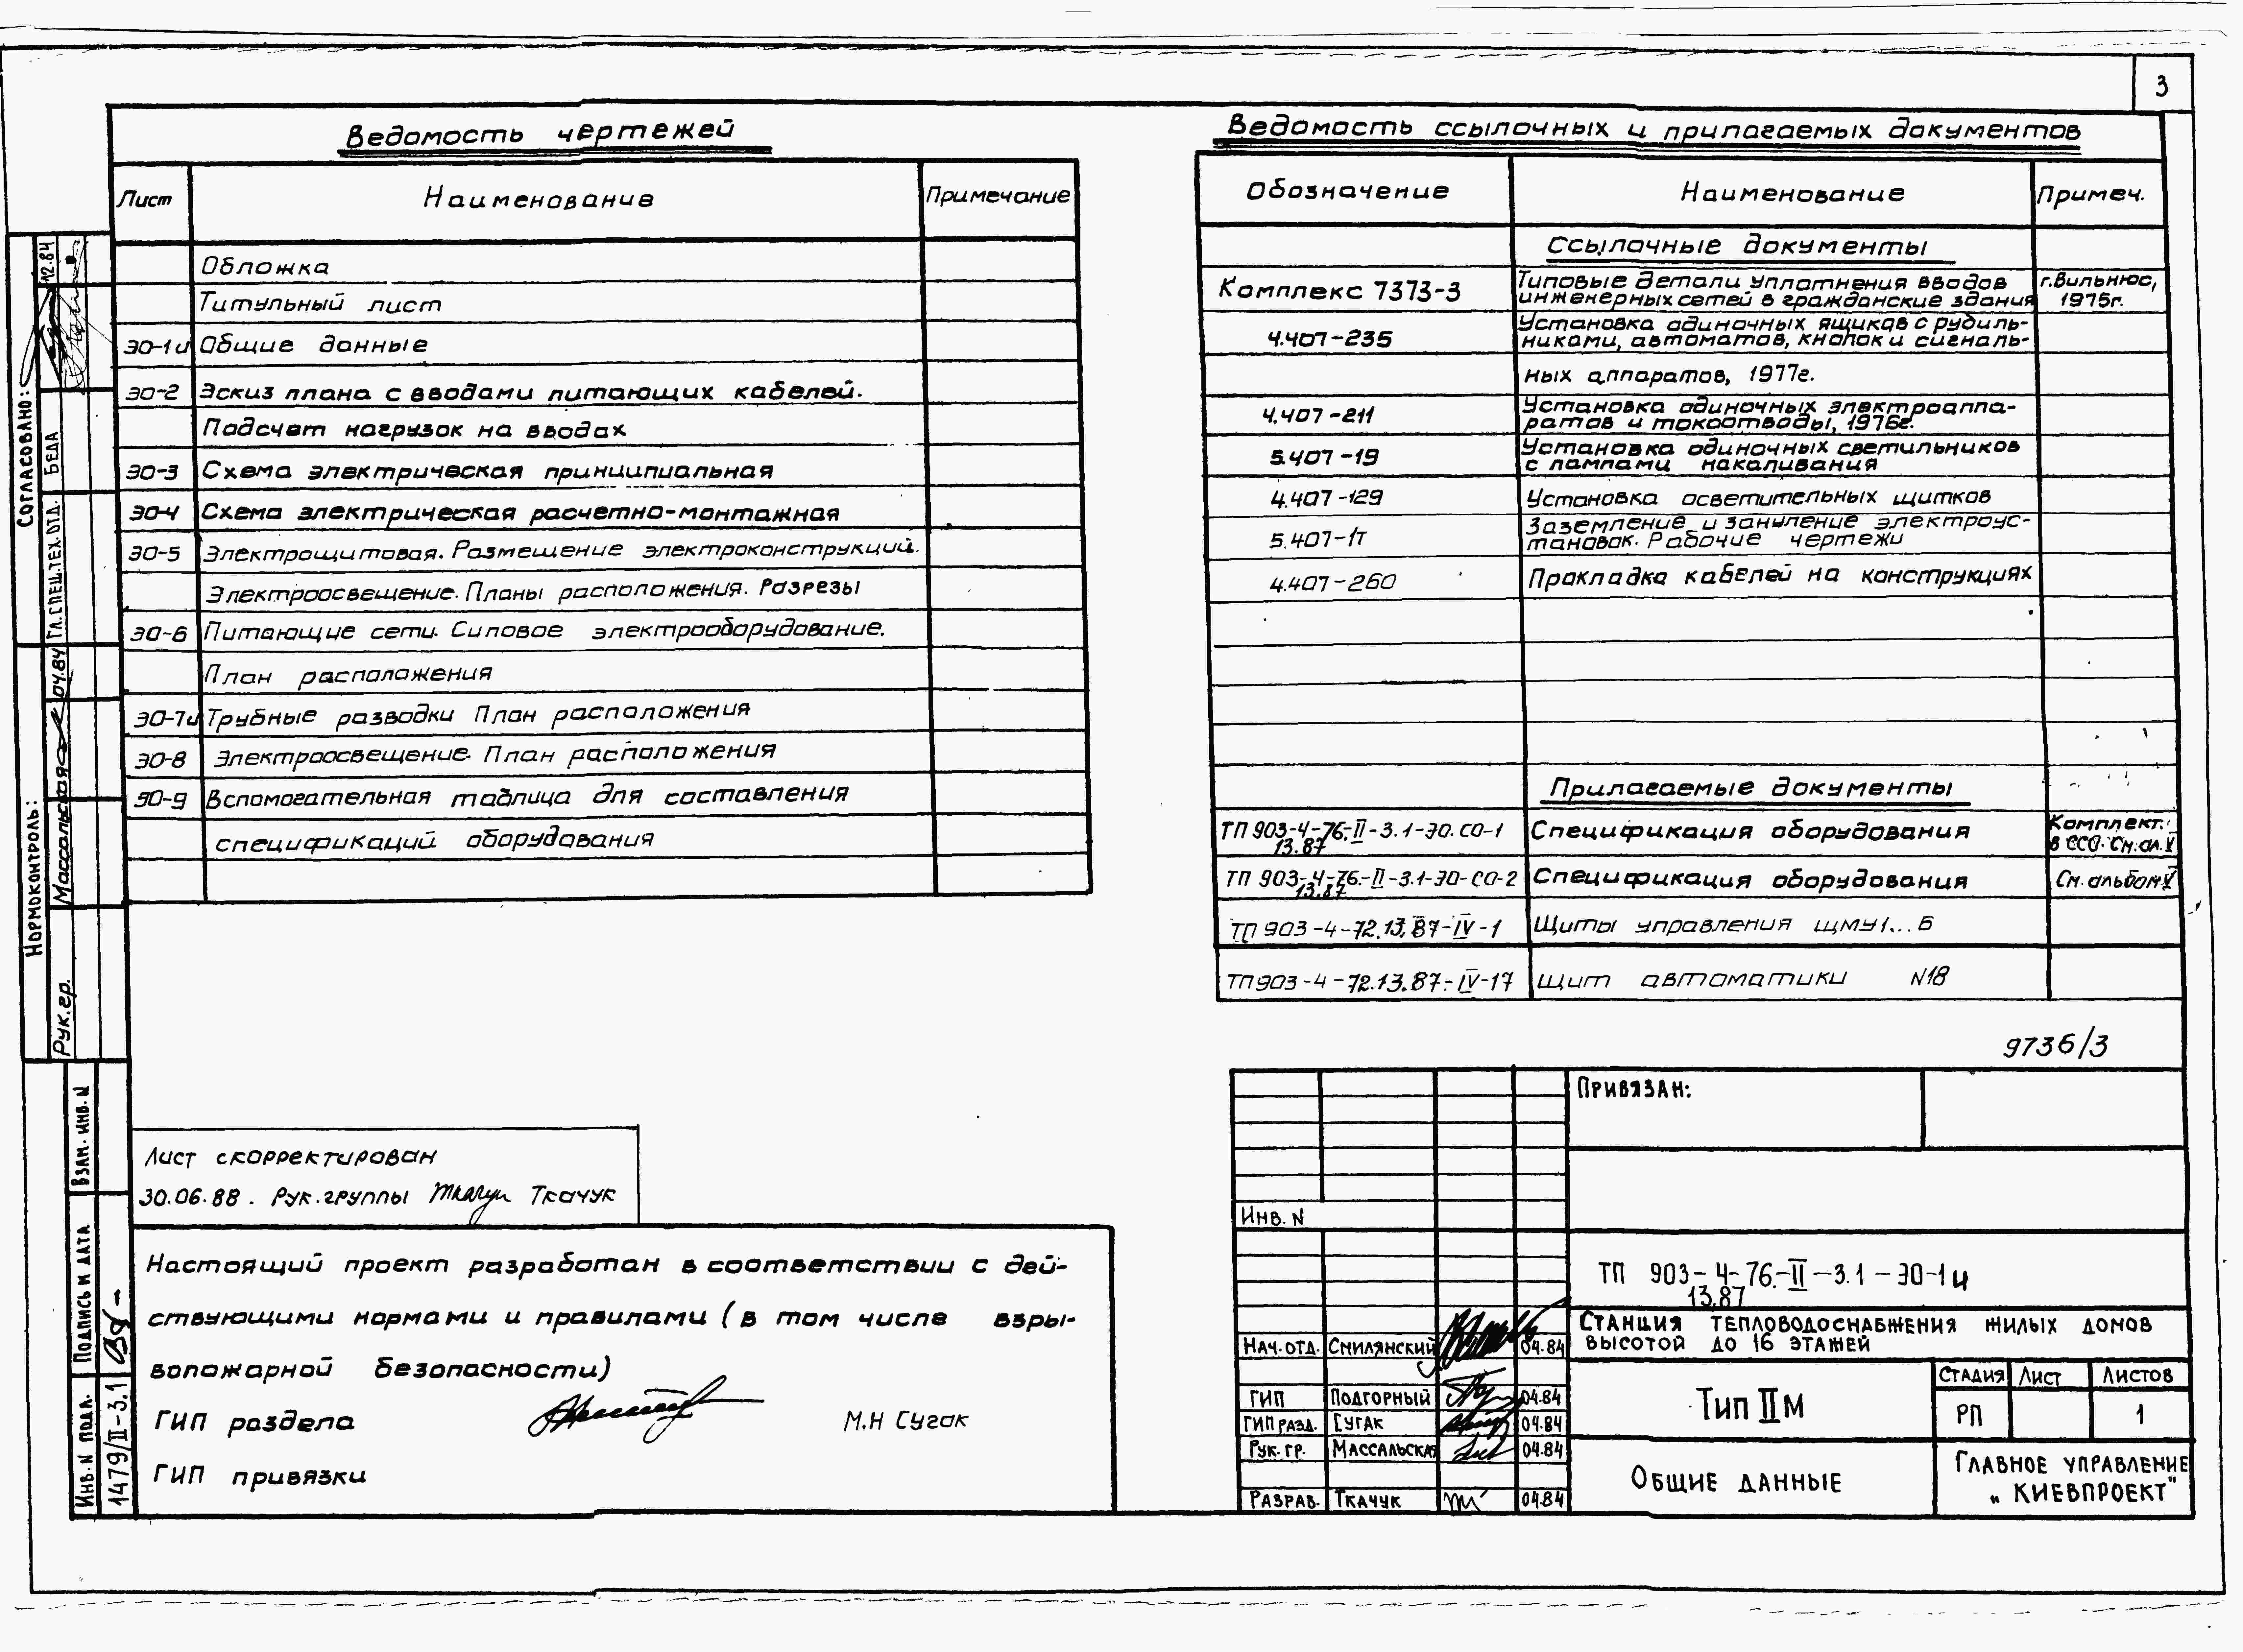 3
Ведомость чертежей
Лист Наименование Примечание
Обложка
Титульный лист
ЭО-1и Общие данные
ЭО-2 Эскиз плана с вводами питающих кабелей.
Подсчет нагрузок на вводах
ЭО-3 Схема электрическая принципиальная
ЭО-4 Схема электрическая расчетно-монтажная
ЭО-5 Электрощитовая. Размещение электроконструкций.
Электроосвещение. Планы расположения. Разрезы
ЭО-6 Питающие сети. Силовое электрооборудование.
План расположения
ЭО-7и Трубные разводки План расположения
ЭО-8 Электроосвещение. План расположения
ЭО-9 Вспомогательная таблица для составления
спецификаций оборудования
Ведомость ссылочных и прилагаемых документов
Обозначение Наименование Примеч.
Ссылочные документы
Комплекс 7373-3 Типовые детали уплотнения вводов г. Вильнюс,
инженерных сетей в гражданские здания 1975г.
4.407-235 Установка одиночных ящиков с рубиль-
никами, автоматов, кнопок и сигналь-
ных аппаратов, 1977г.
4.407-211 Установка одиночных электроаппа-
ратов и токоотводы, 1976г.
5.407-19 Установка одиночных светильников
с лампами накаливания
4.407-129 Установка осветительных щитков
5.407-1т Заземление и зануление электроус-
тановок. Рабочие чертежи
4.407-260 Прокладка кабелей на конструкциях
Прилагаемые документы
ТП 903-4-76.-II-3.1-ЭО.СО-1 Спецификация оборудования Комплект.
13.87 в ССО. См. ал. V
ТП 903-4-76.-II-3.1-ЭО-СО-2 Спецификация оборудования См. альбом V
13.87
ТП 903-4-72.13.87-IV-1 Щиты управления ЩМУ1...6
ТП 903-4-72.13.87-IV-17 Щит автоматики N18
9736/3
Согласовано:
Гл. спец. тех. отд. Беда 12.84
Нормоконтроль:
Рук. гр. Массальская 04.84
Взам. инв. N
Подпись и дата
Инв. N подл. 1479/II-3.1
Лист скорректирован
30.06.88. Рук. группы Ткачук
Настоящий проект разработан в соответствии с дей-
ствующими нормами и правилами (в том числе взры-
вопожарной безопасности)
ГИП раздела М.Н Сугак
ГИП привязки
Привязан:
Инв. N
ТП 903-4-76.-II-3.1-ЭО-1и
13.87
Станция тепловодоснабжения жилых домов
высотой до 16 этажей
Нач. отд. Смилянский 04.84
ГИП Подгорный 04.84
ГИП разд. Сугак 04.84
Рук. гр. Массальская 04.84
Разраб. Ткачук 04.84
Тип II М
Стадия Лист Листов
РП 1
Общие данные
Главное управление
„Киевпроект"